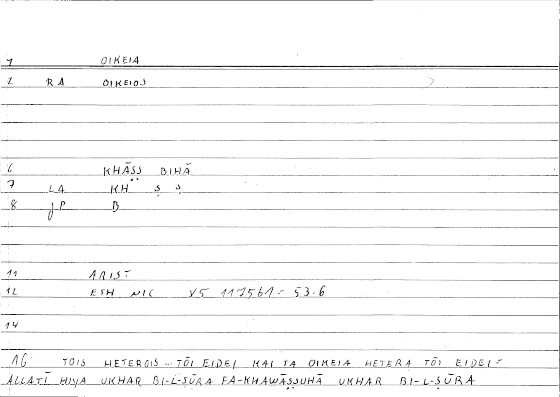 1 OIKEIA
2 RA OIKEIOS
6 KHĀṢṢ BIHĀ
7 LA KH Ṣ Ṣ
8 JP B
11 ARIST
12 ETH NIC V5 1175b1 = 53.6
14
16 TOIS HETEROIS... TŌI EIDEI KAI TA OIKEIA HETERA TŌI EIDEI =
ALLATĪ HIYA UKHAR BI-L-ṢŪRA FA-KHAWĀṢṢUHĀ UKHAR BI-L-ṢŪRA